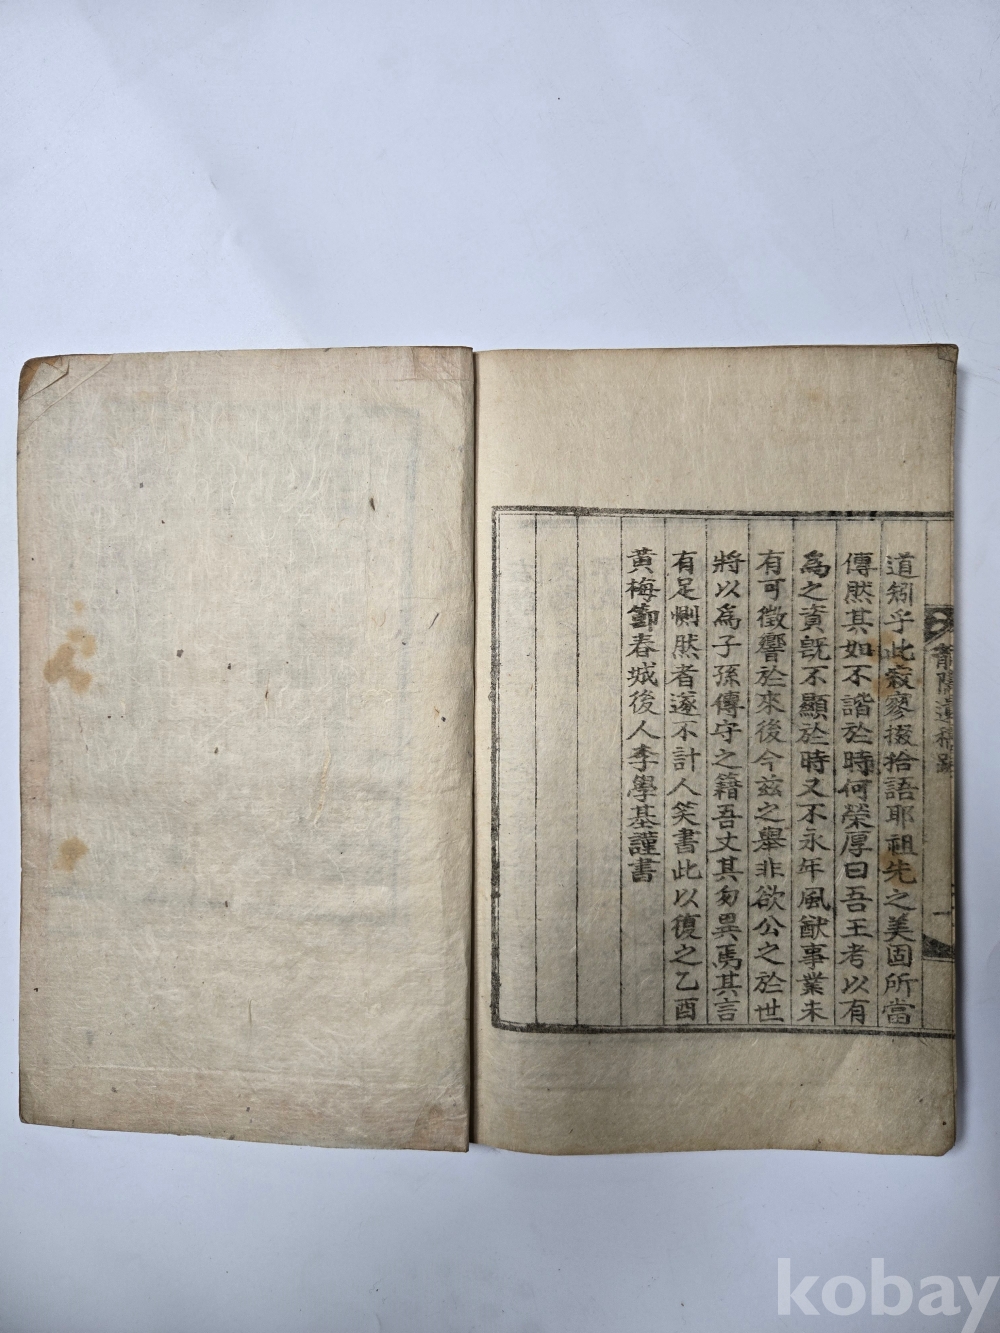 道矧乎此寂寥掇拾語耶祖先之美固所當
傳然其如不諧於時何榮厚曰吾王考以有
爲之資旣不顯於時又不永年風猷事業未
有可徵響於來後今玆之擧非欲公之於世
將以爲子孫傳守之籍吾丈其勿異焉其言
有足惻然者遂不計人笑書此以復之乙酉
黃梅節春城後人李學基謹書
隱遺稿跋
一
kobay